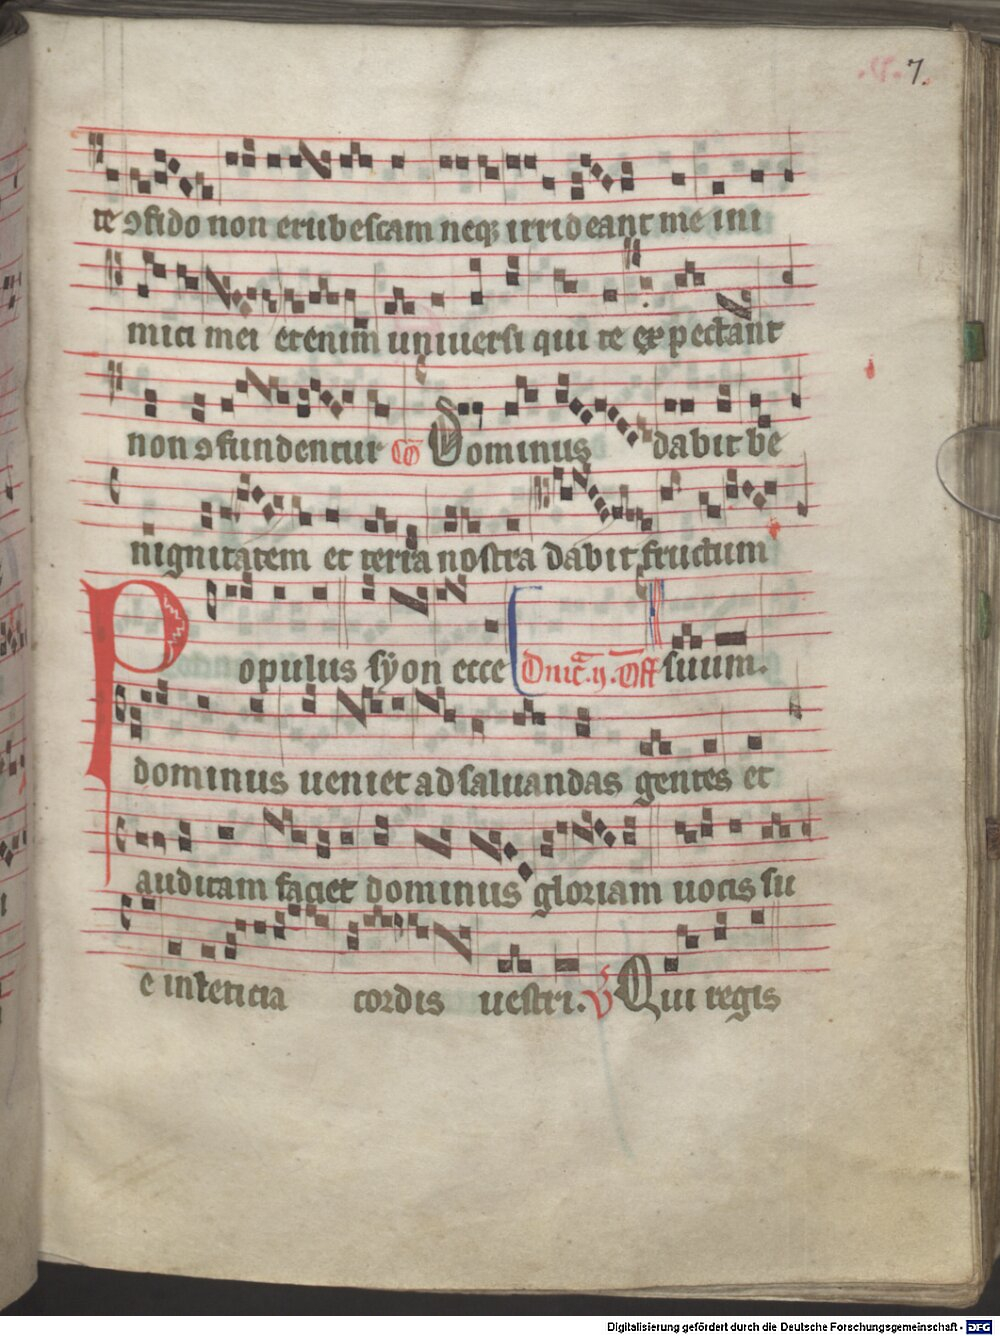 7.
te ꝯfido non erubescam neqꝫ irrideant me ini
mici mei etenim uniuersi qui te expectant
non ꝯfundentur Dominus dabit be
nignitatem et terra nostra dabit fructum
Populus sÿon ecce Dnica .ij. Off suum.
dominus ueniet ad saluandas gentes et
auditam faciet dominus gloriam uocis su
e in leticia cordis uestri. V Qui regis
Digitalisierung gefördert durch die Deutsche Forschungsgemeinschaft - DFG